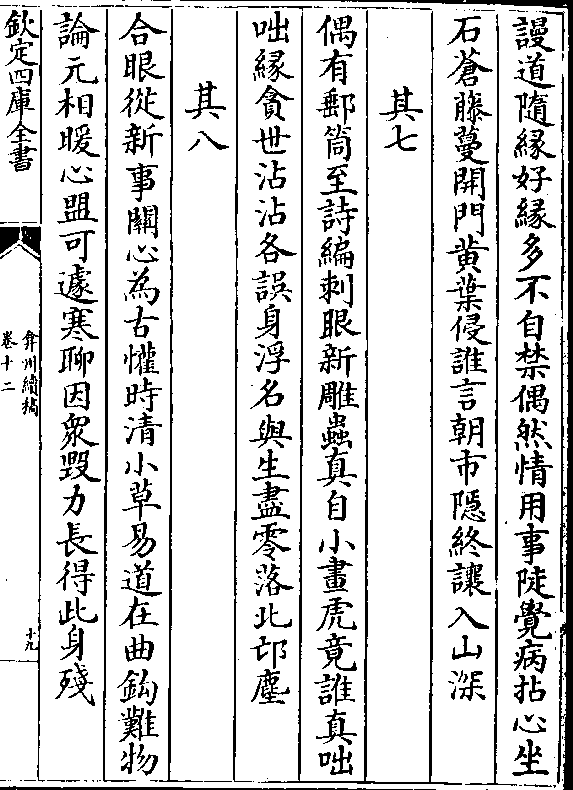 謾道隨縁好縁多不自禁偶然情用事陡覺病拈心坐
石蒼藤蔓開門黄葉侵誰言朝市隠終讓入山深
其七
偶有郵筒至詩編刺眼新雕蟲真自小畫虎竟誰真咄
咄縁貪世沾沾各誤身浮名與生盡零落北邙塵
其八
合眼從新事闗心為古懽時清小草易道在曲鈎難物
論元相暖心盟可遽寒聊因衆毁力長得此身殘
欽定四庫全書
弇州續稿
卷十二
十九